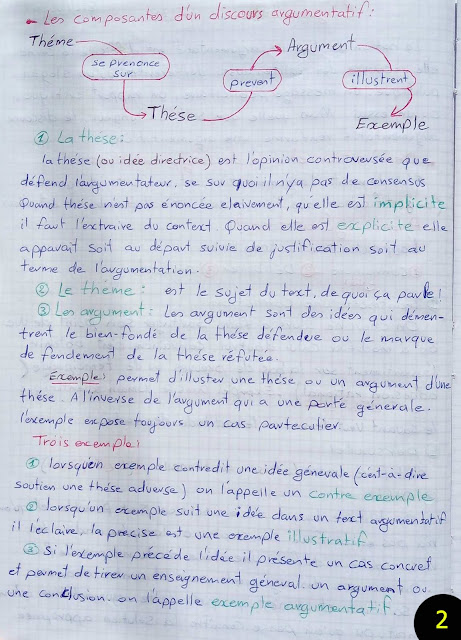 - Les composantes d'un discours argumentatif :
Théme
se prononce sur
Thése
prevent
Argument
illustrent
Exemple
① La these :
la thése (ou idée directrice) est l'opinion controversée que
défend l'argumentateur. se sur quoi il n'ya pas de consensus
Quand thése n'est pas énoncée claivement, qu'elle est implicite
il faut l'extraire du context. Quand elle est explicite elle
appavait soit au départ suivie de justification soit au
terme de l'argumentation.
② Le théme : est le sujet du text, de quoi ça parle !
③ Les argument : Les argument sont des idées qui démen-
trent le bien-fondé de la thése défendue ou le marque
de fendement de la thése réfutée.
Exemple : permet d'illuster une thése ou un argument d'une
thése. A l'inverse de l'argument qui a une porté génerale.
l'exemple expose toujours un cas parteculier.
Trois exemple :
① lorsqu'un exemple contredit une idée génevale (c'ent-à-dire
soutien une thése adverse) on l'appelle un contre exemple
② lorsqu'un exemple suit une idée dans un text argumentatif
il l'éclaire, la precise est une exemple illustratif
③ Si l'exemple précéde l'idée il présente un cas concret
et permet de tirer un enseignement géneral. un argument ou
une conclusion. on l'appelle exemple argumentatif.
2